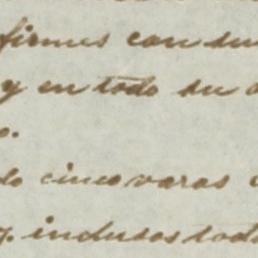 firmes con su
y en todo su
o.
do cinco varas
y. inclusos todo